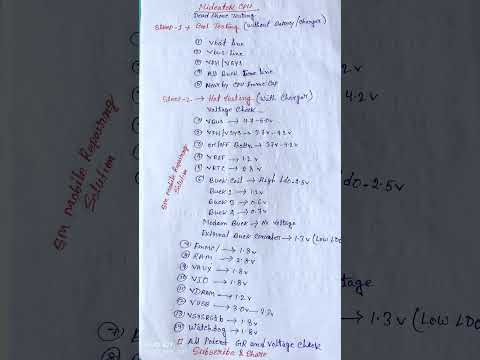 Mideatek CPU
Dead Phone Testing
Step-1 → Cool Testing (without Battery/Charger)
① Vbat line
② Vbus line
③ VPH/VSYS
④ All Buck line
⑤ Nearby CPU Cap
Step-2 → Hot Testing (With Charger)
Voltage Check
① VBUS → 4.8-5.0v
② VPH/VSYS → 3.7v-4.2v
③ on/off Button → 3.7v-4.2v
④ VREF → 1.2v
⑤ VRTC → 2.8v
⑥ Buck Coil → High ldo-2.5v
Buck 1 → 1.2v
Buck 2 → 0.6v
Buck 3 → 0.7v
Modem Buck → No Voltage
External Buck Converter → 1.3v (Low LDO
⑦ Emmc/ → 1.8v
⑧ RAM → 2.8v
⑨ VAUX → 1.8v
⑩ VIO → 1.8v
⑪ VDRAM → 1.2v
⑫ VUSB →
⑬ → 1.8v
⑭ Watchdog → 1.8v
All Point GR and Voltage Check
Subscribe & Share
SM Mobile Repairing
Solution
SM Mobile Repairing
Solution
4.2v
-4.2v
do-2.5v
tage
1.3v (Low LDO